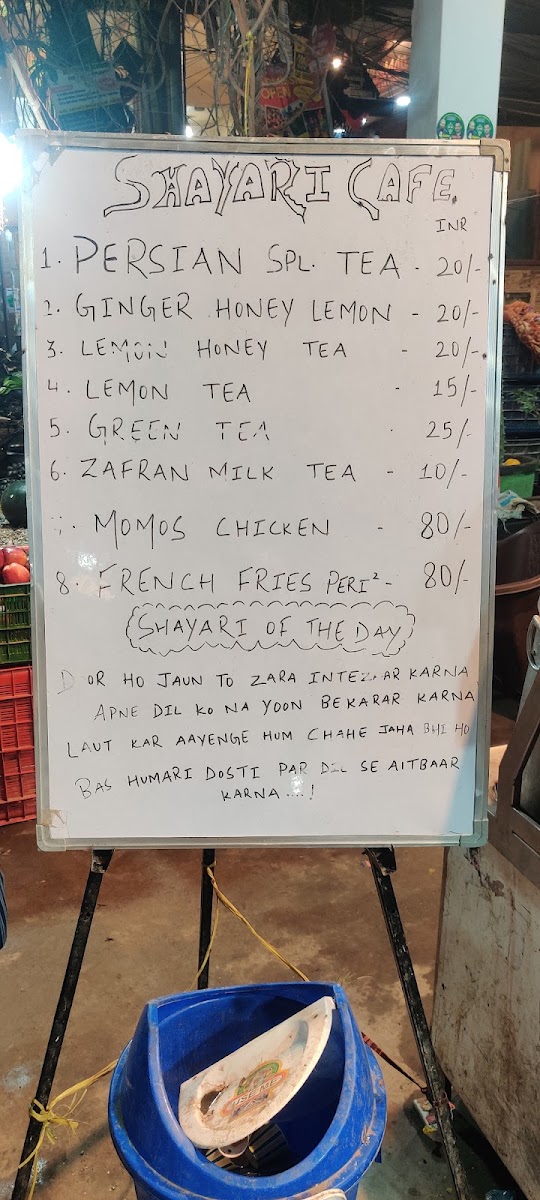 SHAYARI CAFE
INR
1. PERSIAN SPL. TEA - 20/-
2. GINGER HONEY LEMON - 20/-
3. LEMON HONEY TEA - 20/-
4. LEMON TEA - 15/-
5. GREEN TEA - 25/-
6. ZAFRAN MILK TEA - 10/-
MOMOS CHICKEN - 80/-
8. FRENCH FRIES PERI² - 80/-
SHAYARI OF THE DAY
DOR HO JAUN TO ZARA INTEZAAR KARNA
APNE DIL KO NA YOON BEKARAR KARNA
LAUT KAR AAYENGE HUM CHAHE JAHA BHI HO
BAS HUMARI DOSTI PAR DIL SE AITBAAR
KARNA....!